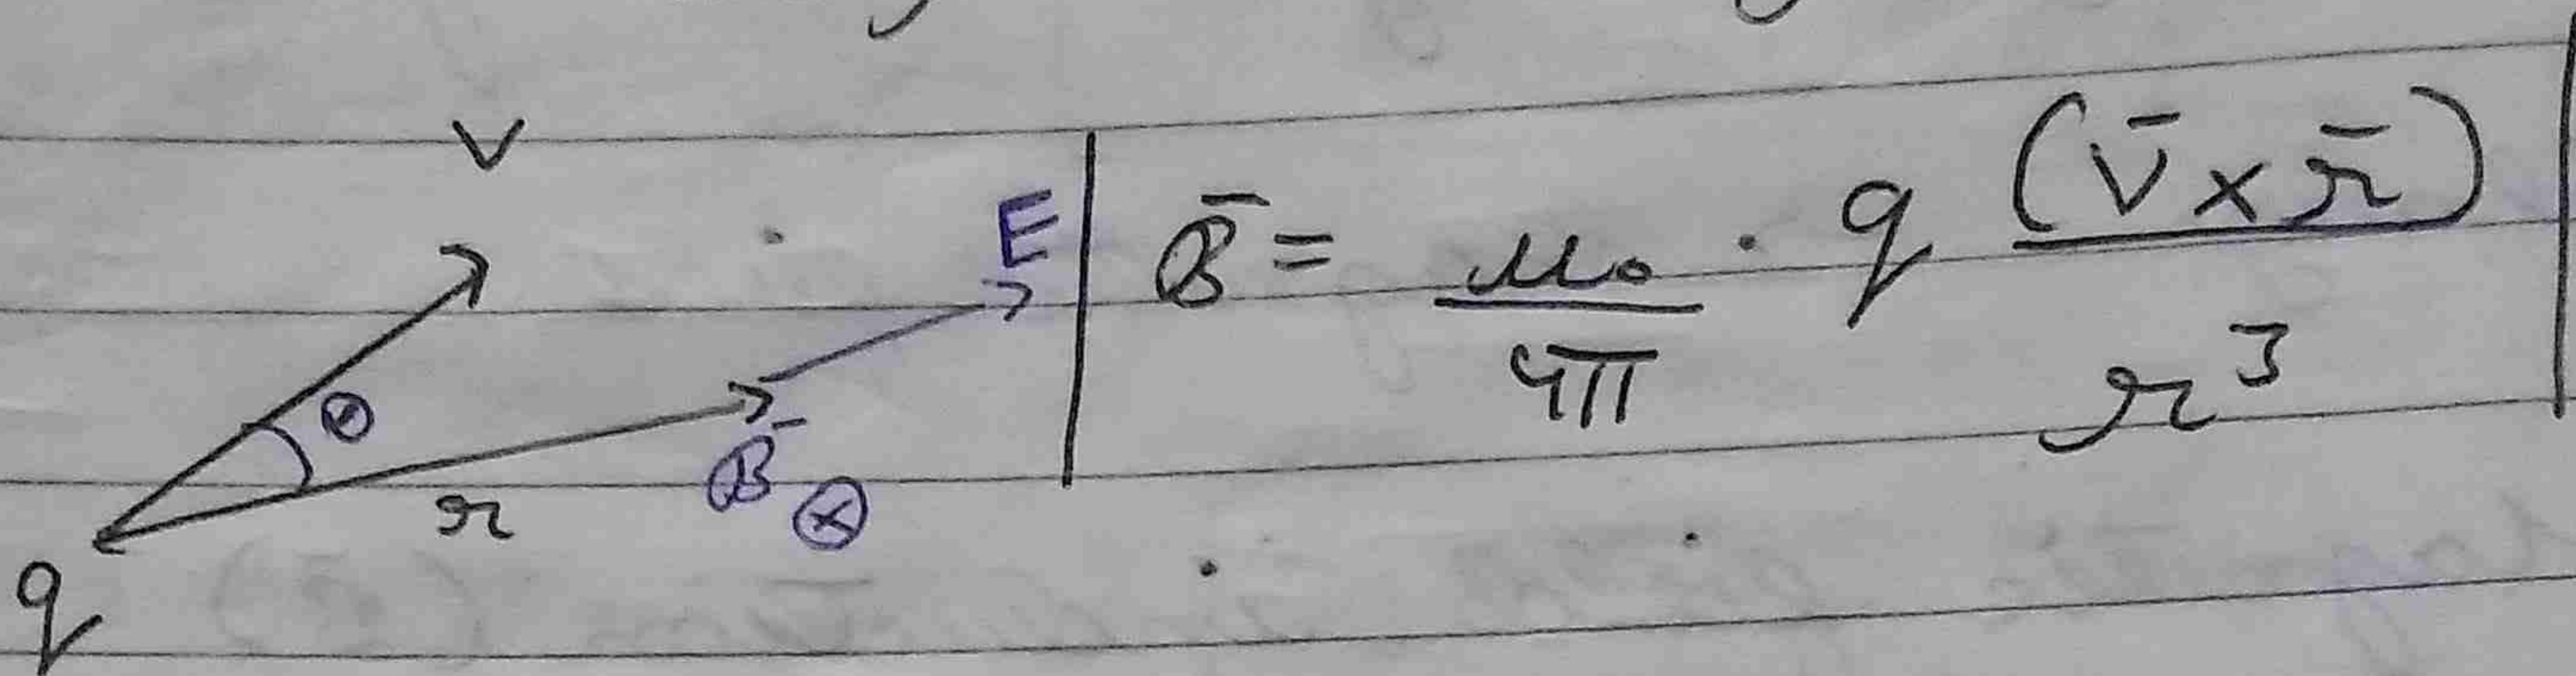 v
E
θ
r
B̄ ⊗
q
B̄ = μ₀/4π · q (v̄ × r̄)/r³